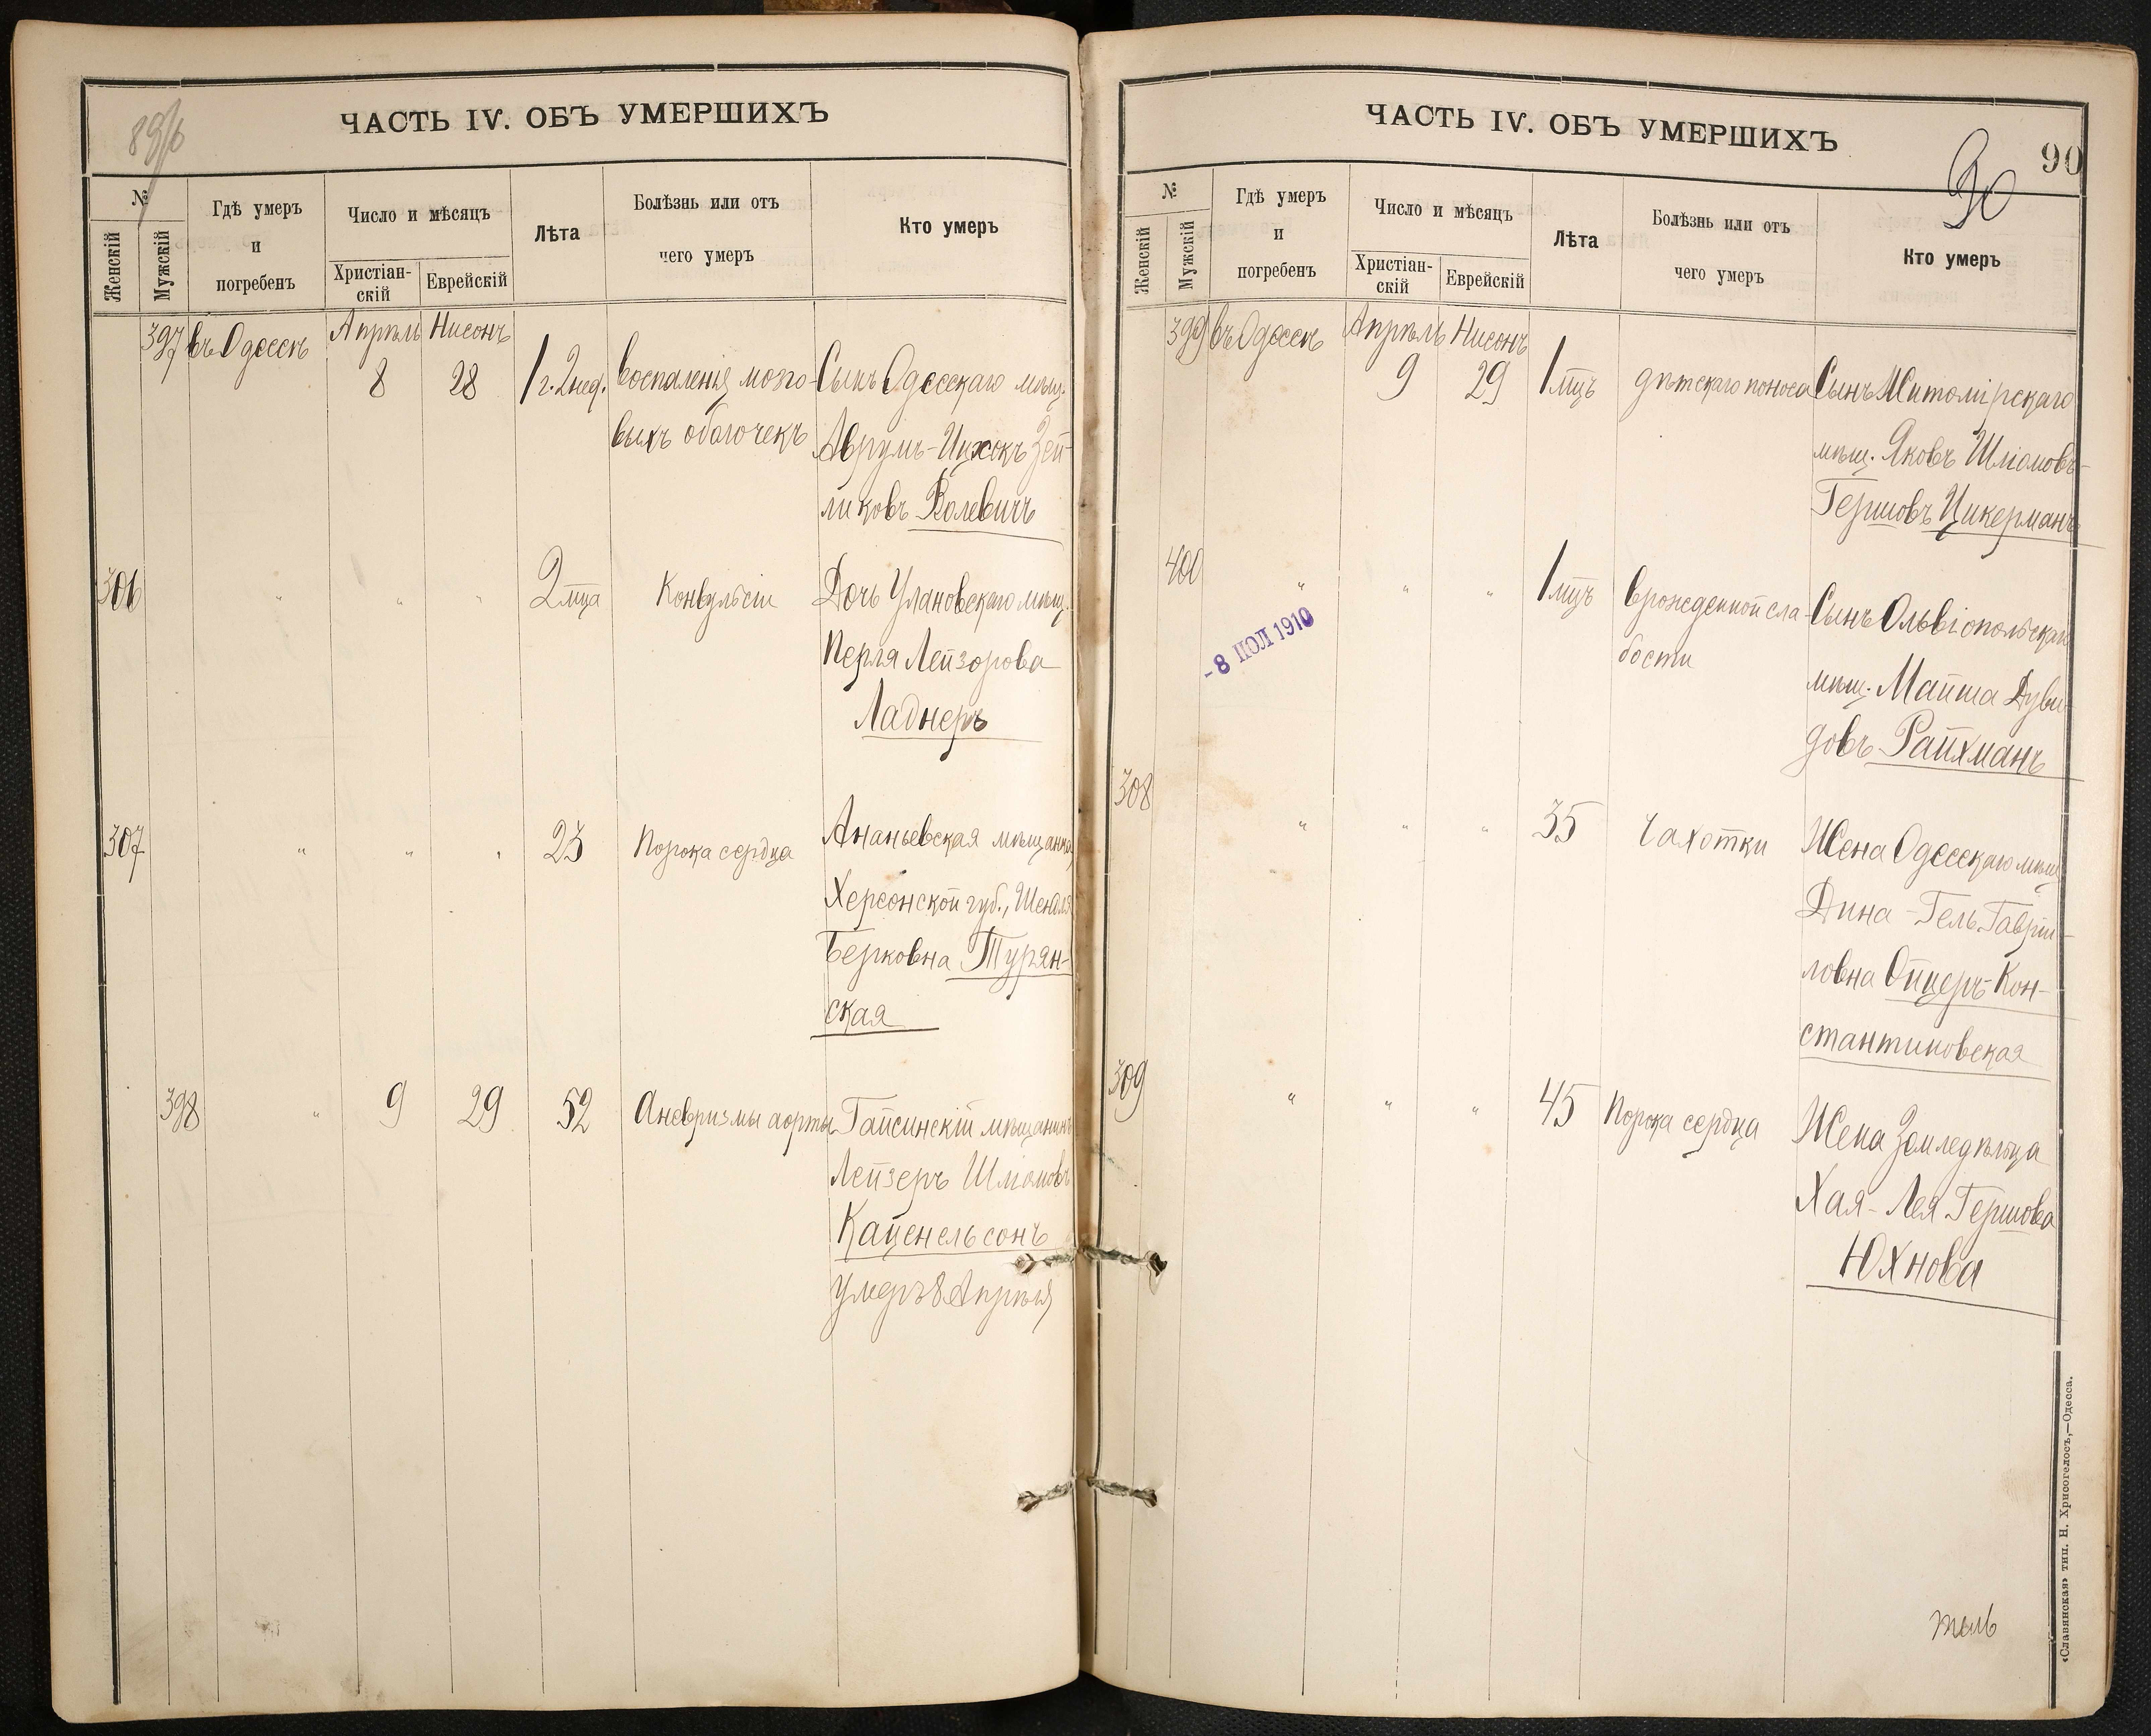 89/б
ЧАСТЬ IV. ОБЪ УМЕРШИХЪ
№
Женскій
Мужскій
Гдѣ умеръ
и
погребенъ
Число и мѣсяцъ
Христіан-
скій
Еврейскій
Лѣта
Болѣзнь или отъ
чего умеръ
Кто умеръ
Апрѣль Нисонъ
397 въ Одессѣ 8 28 1 г. 2 нед. воспаленія мозго- Сынъ Одесскаго мѣщ.
выхъ оболочекъ Аврумъ-Ицхокъ Зей-
ликовъ Волевичъ
306 " " " 2 мца Конвульсіи Дочь Улановскаго мѣщ.
Перля Лейзорова
Ладнеръ
307 " " " 23 Порока сердца Ананьевская мѣщанка,
Херсонской губ., Шендля
Берковна Турян-
ская
398 " 9 29 52 Аневризмы аорты Гайсинскій мѣщанинъ
Лейзеръ Шліомовъ
Каценельсонъ
умеръ 8 Апрѣля
ЧАСТЬ IV. ОБЪ УМЕРШИХЪ
90
90
№
Женскій
Мужскій
Гдѣ умеръ
и
погребенъ
Число и мѣсяцъ
Христіан-
скій
Еврейскій
Лѣта
Болѣзнь или отъ
чего умеръ
Кто умеръ
Апрѣль Нисонъ
399 въ Одессѣ 9 29 1 мцъ дѣтскаго поноса Сынъ Житомірскаго
мѣщ. Яковъ Шліомовъ-
Гершовъ Цикерманъ
400 " " " 1 мцъ врожденной сла- Сынъ Ольвіопольскаго
бости мѣщ. Майша Дуви-
довъ Райхманъ
- 8 ІЮЛ 1910
308 " " " 35 Чахотки Жена Одесскаго мѣщ.
Дина-Гель Гаври-
ловна Ойцеръ-Кон-
стантиновская
309 " " " 45 Порока сердца Жена Земледѣльца
Хая-Лея Гершова
Юхнова
«Славянская» тип. Н. Хрисогелосъ,—Одесса.